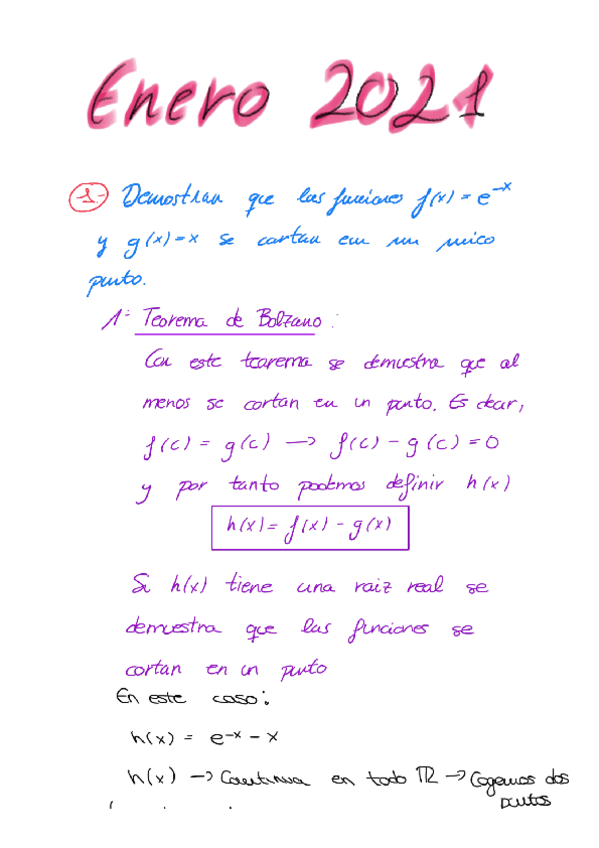 Enero 2021
1- Demostrar que las funciones f(x) = e^-x
y g(x) = x se cortan en un unico
punto.
1º Teorema de Bolzano:
Con este teorema se demuestra que al
menos se cortan en un punto. Es decir,
f(c) = g(c) → f(c) - g(c) = 0
y por tanto podemos definir h(x)
h(x) = f(x) - g(x)
Si h(x) tiene una raiz real se
demuestra que las funciones se
cortan en un punto
En este caso:
h(x) = e^-x - x
h(x) → Continua en todo ℝ → Cogemos dos
puntos